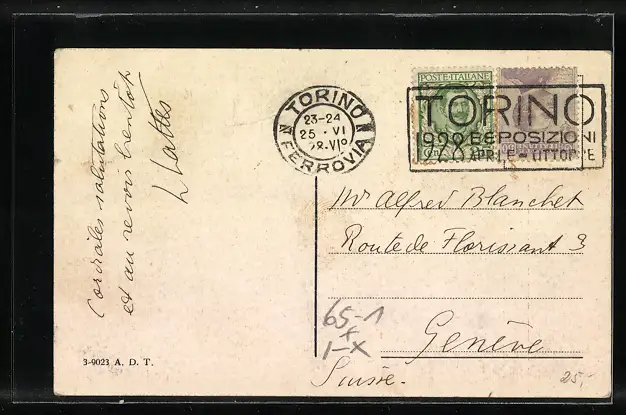 Cordiales salutations
et au revoir bientôt
TORINO
23-24
25 · VI
FERROVIA
POSTE·ITALIANE
TORINO
1928 ESPOSIZIONI
APRILE - OTTOBRE
Mr Alfred Blanchet
Route de Florissant 3
Genève
Suisse.
65-1
1-X
3-9023 A. D. T.
25.-